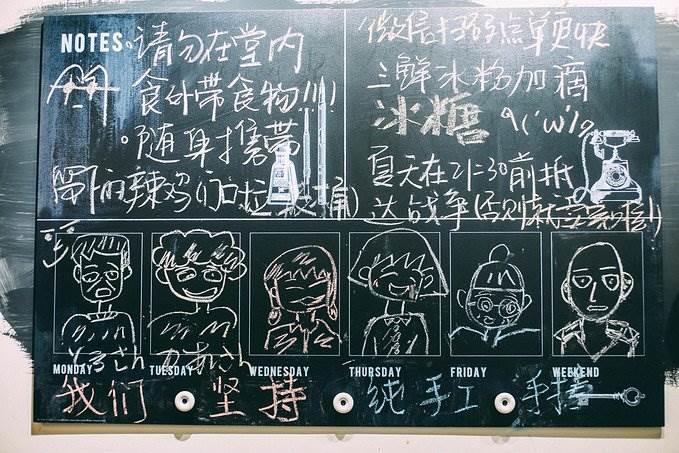 NOTES。请勿在堂内
食外带食物!!!
。随身携带
的辣鸡们
微信扫码点单更快
三鲜冰粉加滴
冰糖 q('ω')p
夏天在21:30前抵
达战争(否则
とうさん
かあさん
MONDAY
TUESDAY
WEDNESDAY
THURSDAY
FRIDAY
WEEKEND
我们 坚持 纯手工 手搓